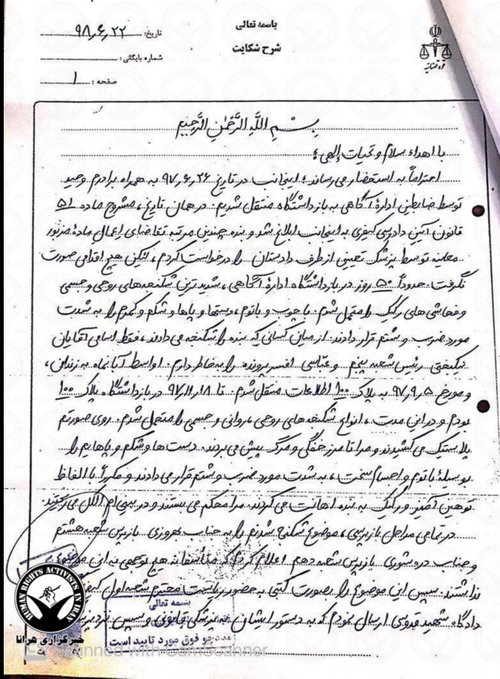 باسمه تعالی
شرح شکایت
تاریخ: ۹۸٫۶٫۲۲
شماره بایگانی:
صفحه: ۱
قوه قضائیه
بِسْمِ اللَّهِ الرَّحْمٰنِ الرَّحِیْمِ
با اهداء سلام و تحیات الهی؛
احتراماً به استحضار می رساند؛ اینجانب در تاریخ ۹۷٫۶٫۲۶ به همراه برادرم وحید
توسط ضابطین ادارۀ آگاهی به بازداشتگاه منتقل شدیم. در همان تاریخ، مشروح ماده ۵۱
قانون آیین دادرسی کیفری به اینجانب ابلاغ شد و بنده چندین مرتبه تقاضای اعمال مادۀ مزبور
معاینه توسط پزشک معینی از طرف دادستان را درخواست کردم، لیکن هیچ اقدامی صورت
نگرفت. حدوداً ۵۰ روز در بازداشتگاه ادارۀ آگاهی، شدیدترین شکنجه‌های روحی و جسمی
و فحاشی های رکیک را متحمل شدم. با چوب و باتوم، دستها و پاها و شکم و کمرم را به شدت
مورد ضرب و شتم قرار دادند. از میان کسانی که بنده را شکنجه می دادند، فقط اسامی آقایان
نیکبختی رئیس شعبه پنجم و عباسی افسر پرونده را به خاطر دارم. اواسط آبانماه به زندان،
و مورخ ۹۷٫۹٫۵ به پلاک ۱۰۰ اطلاعات منتقل شدم. تا ۹۷٫۱۱٫۱۸ در بازداشتگاه پلاک ۱۰۰
بودم و در این مدت، انواع شکنجه های روحی، روانی و جسمی را متحمل شدم. روی صورتم
پلاستیک می کشیدند و مرا تا مرز خفگی و مرگ پیش می بردند. دست ها و شکم و پاهایم را
بوسیلۀ باتوم و اجسام سخت، به شدت مورد ضرب و شتم قرار می دادند و مکرراً با الفاظ
توهین آمیز و رکیک به بنده اهانت می کردند. مرا محکم می بستند و در بینی ام الکل می ریختند.
در تمامی مراحل بازپرسی، موضوع شکنجه شدنم را به جناب بهروزی بازپرس شعبه هشتم
و جناب بازپرس شعبه دهم اعلام کردم که متأسفانه هم توجهی به این موضوع
نداشتند. سپس این موضوع را بصورت کتبی به حضور ریاست محترم شعبه اول کیفری
دادگاه شهید قدوسی ارسال نمودم که به دستور ایشان به پزشکی قانونی و سپس
باسمه تعالی
مددجو فوق مورد تایید است
HUMAN RIGHTS ACTIVISTS IN IRAN
خبرگزاری هرانا
Scanned with CamScanner